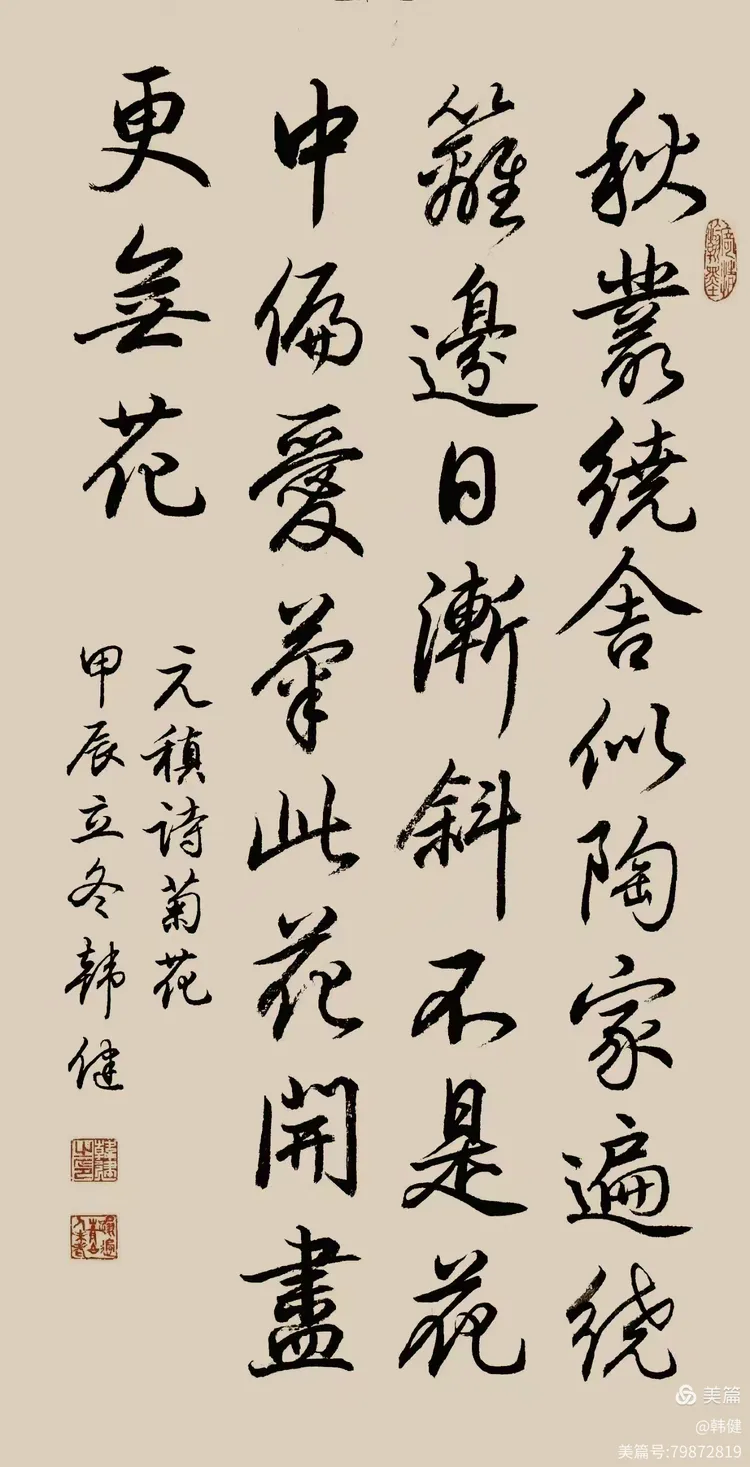 秋叢繞舍似陶家遍繞
籬邊日漸斜不是花
中偏愛菊此花開盡
更無花
元稹詩菊花
甲辰立冬韓健
美篇
@韩健
美篇号:79872819